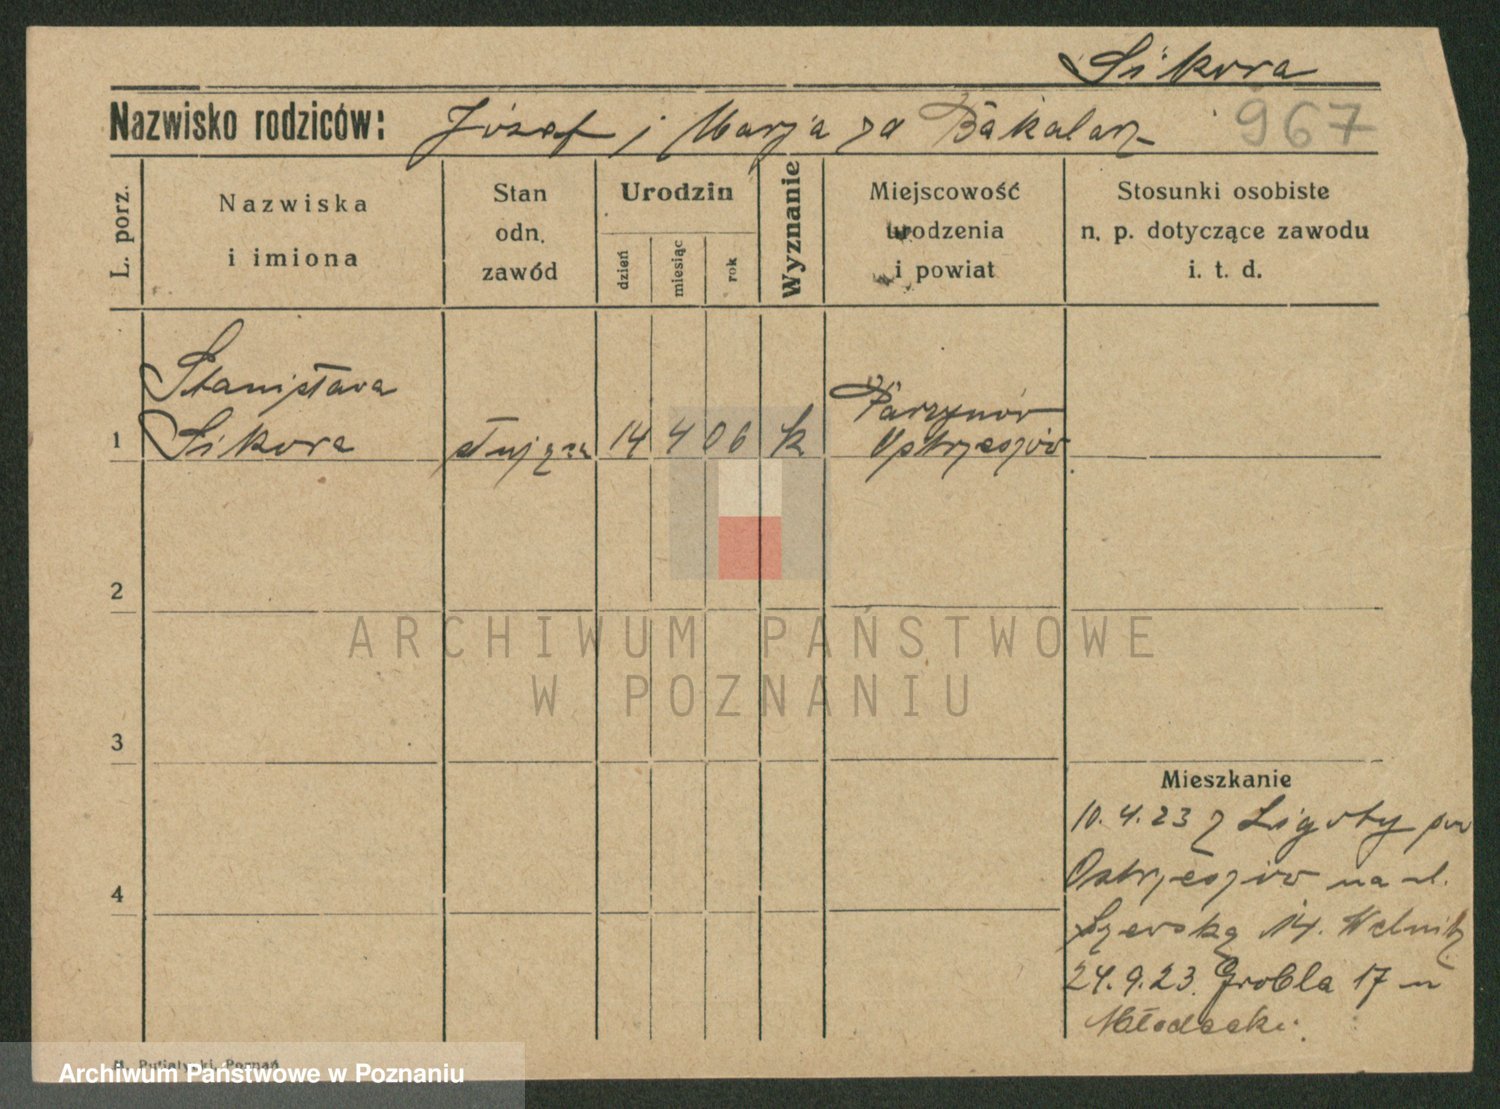 Sikora
Nazwisko rodziców: Józef i Marja zd Bakalarz 967
L. porz.
Nazwiska
i imiona
Stan
odn.
zawód
Urodzin
dzień
miesiąc
rok
Wyznanie
Miejscowość
urodzenia
i powiat
Stosunki osobiste
n. p. dotyczące zawodu
i. t. d.
Stanisława
1 Sikora służąca 14 4 06 k Parzynów
Ostrzeszów
2
ARCHIWUM PAŃSTWOWE
W POZNANIU
3
Mieszkanie
10.4.23 z Ligoty pow
Ostrzeszów na ul.
4
Szewską 14. Welnitz
24.9.23. Grobla 17 u
Młodecki.
Poznań
Archiwum Państwowe w Poznaniu